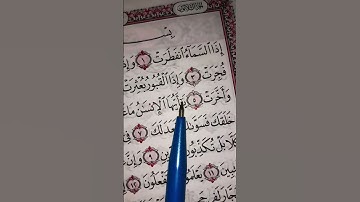 بِسْ
إِذَا ٱلسَّمَآءُ ٱنفَطَرَتْ ١ وَإِذَا
فُجِّرَتْ ٣ وَإِذَا ٱلْقُبُورُ بُعْثِرَتْ
وَأَخَّرَتْ ٥ يَٰٓأَيُّهَا ٱلْإِنسَٰنُ مَا
خَلَقَكَ فَسَوَّىٰكَ فَعَدَلَكَ ٧
كَلَّا بَلْ تُكَذِّبُونَ ٩ وَإِنَّ
١١ يَعْلَمُونَ تَفْعَلُونَ ١٢
لَفِى